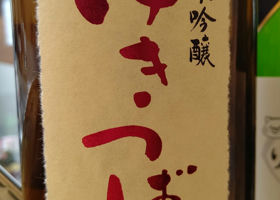 吟醸
ゆきつば